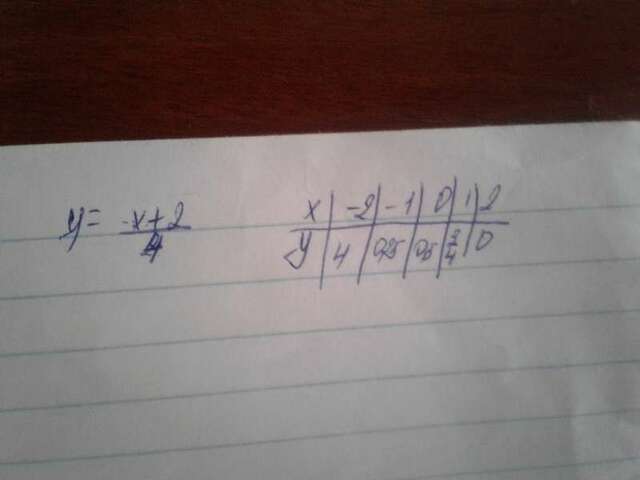 y = -x+2/4
x | -2 | -1 | 0 | 1 | 2
y | 4 | 0,25 | 0,5 | 3/4 | 0